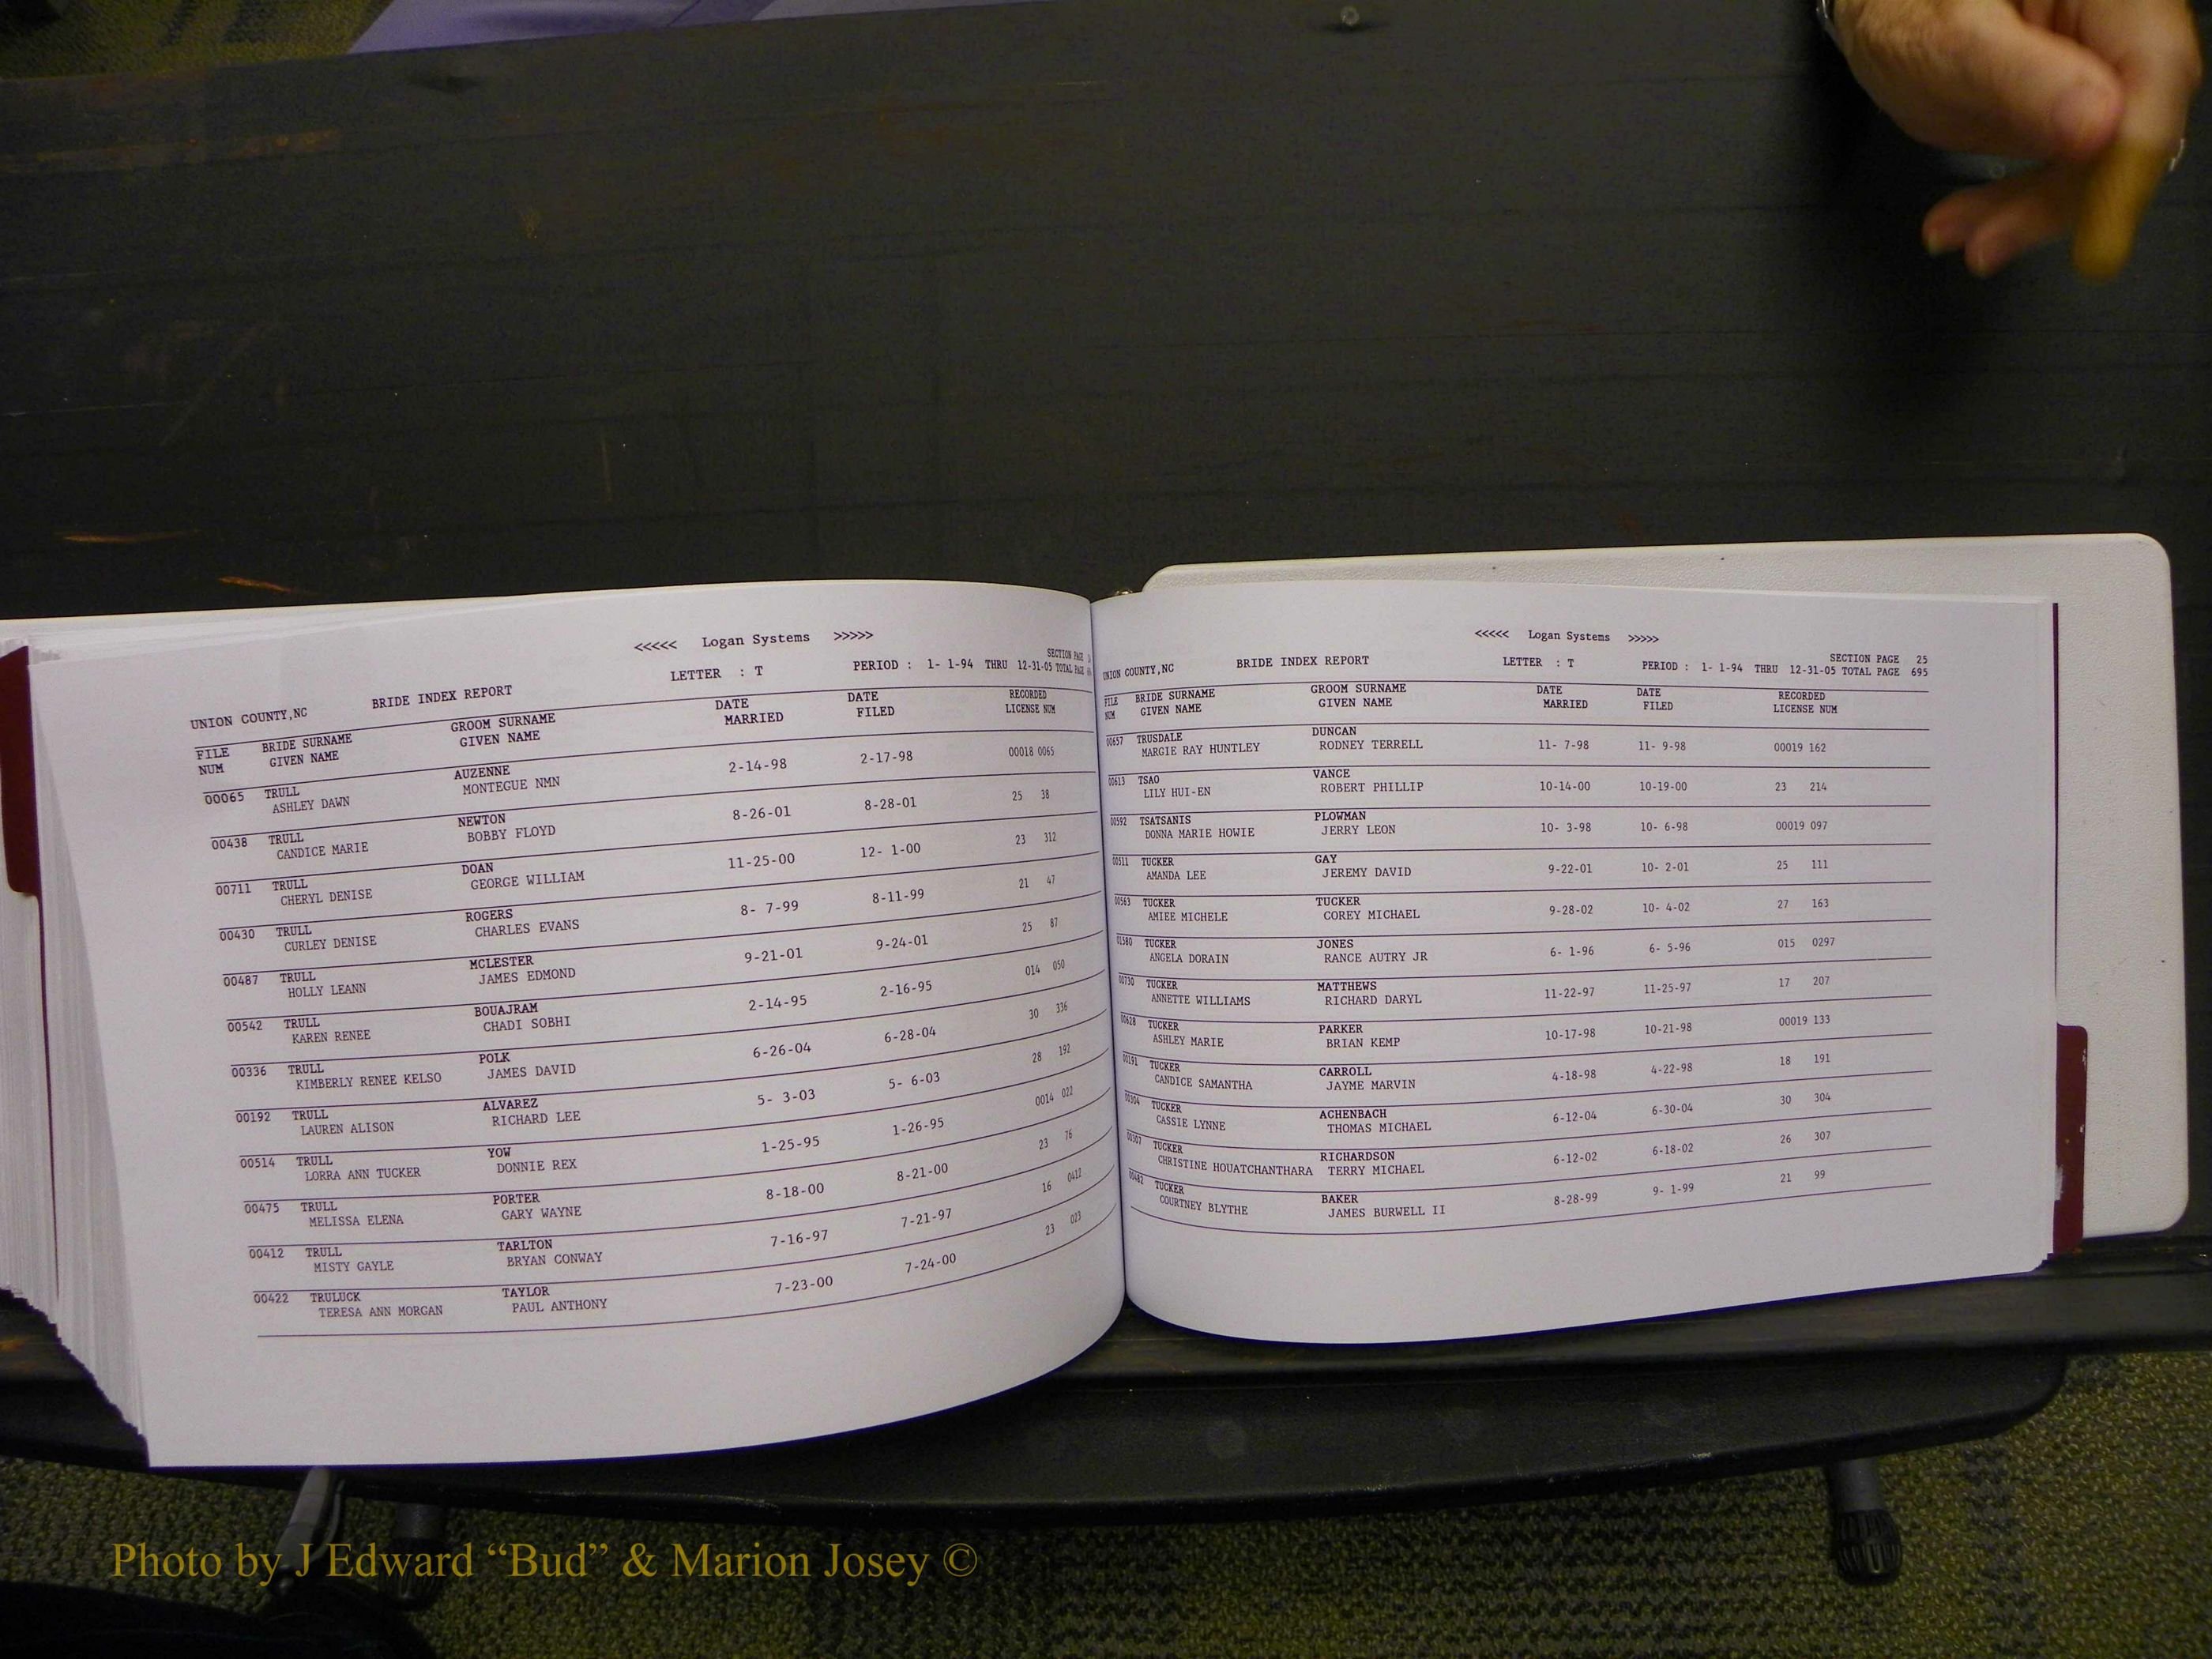 <<<<< Logan Systems >>>>>
UNION COUNTY,NC BRIDE INDEX REPORT LETTER : T PERIOD : 1- 1-94 THRU 12-31-05
SECTION PAGE
TOTAL PAGE
FILE BRIDE SURNAME GROOM SURNAME DATE DATE RECORDED
NUM GIVEN NAME GIVEN NAME MARRIED FILED LICENSE NUM
00065 TRULL AUZENNE 2-14-98 2-17-98 00018 0065
ASHLEY DAWN MONTEGUE NMN
00438 TRULL NEWTON 8-26-01 8-28-01 25 38
CANDICE MARIE BOBBY FLOYD
00711 TRULL DOAN 11-25-00 12- 1-00 23 312
CHERYL DENISE GEORGE WILLIAM
00430 TRULL ROGERS 8- 7-99 8-11-99 21 47
CURLEY DENISE CHARLES EVANS
00487 TRULL MCLESTER 9-21-01 9-24-01 25 87
HOLLY LEANN JAMES EDMOND
00542 TRULL BOUAJRAM 2-14-95 2-16-95 014 050
KAREN RENEE CHADI SOBHI
00336 TRULL POLK 6-26-04 6-28-04 30 336
KIMBERLY RENEE KELSO JAMES DAVID
00192 TRULL ALVAREZ 5- 3-03 5- 6-03 28 192
LAUREN ALISON RICHARD LEE
00514 TRULL YOW 1-25-95 1-26-95 0014 022
LORRA ANN TUCKER DONNIE REX
00475 TRULL PORTER 8-18-00 8-21-00 23 76
MELISSA ELENA GARY WAYNE
00412 TRULL TARLTON 7-16-97 7-21-97 16 0412
MISTY GAYLE BRYAN CONWAY
00422 TRULUCK TAYLOR 7-23-00 7-24-00 23 023
TERESA ANN MORGAN PAUL ANTHONY
<<<<< Logan Systems >>>>>
UNION COUNTY,NC BRIDE INDEX REPORT LETTER : T PERIOD : 1- 1-94 THRU 12-31-05
SECTION PAGE 25
TOTAL PAGE 695
FILE BRIDE SURNAME GROOM SURNAME DATE DATE RECORDED
NUM GIVEN NAME GIVEN NAME MARRIED FILED LICENSE NUM
00657 TRUSDALE DUNCAN 11- 7-98 11- 9-98 00019 162
MARGIE RAY HUNTLEY RODNEY TERRELL
00613 TSAO VANCE 10-14-00 10-19-00 23 214
LILY HUI-EN ROBERT PHILLIP
00592 TSATSANIS PLOWMAN 10- 3-98 10- 6-98 00019 097
DONNA MARIE HOWIE JERRY LEON
00511 TUCKER GAY 9-22-01 10- 2-01 25 111
AMANDA LEE JEREMY DAVID
00563 TUCKER TUCKER 9-28-02 10- 4-02 27 163
AMIEE MICHELE COREY MICHAEL
01580 TUCKER JONES 6- 1-96 6- 5-96 015 0297
ANGELA DORAIN RANCE AUTRY JR
00730 TUCKER MATTHEWS 11-22-97 11-25-97 17 207
ANNETTE WILLIAMS RICHARD DARYL
00628 TUCKER PARKER 10-17-98 10-21-98 00019 133
ASHLEY MARIE BRIAN KEMP
00191 TUCKER CARROLL 4-18-98 4-22-98 18 191
CANDICE SAMANTHA JAYME MARVIN
00304 TUCKER ACHENBACH 6-12-04 6-30-04 30 304
CASSIE LYNNE THOMAS MICHAEL
00307 TUCKER RICHARDSON 6-12-02 6-18-02 26 307
CHRISTINE HOUATCHANTHARA TERRY MICHAEL
00482 TUCKER BAKER 8-28-99 9- 1-99 21 99
COURTNEY BLYTHE JAMES BURWELL II
Photo by J Edward “Bud” & Marion Josey ©